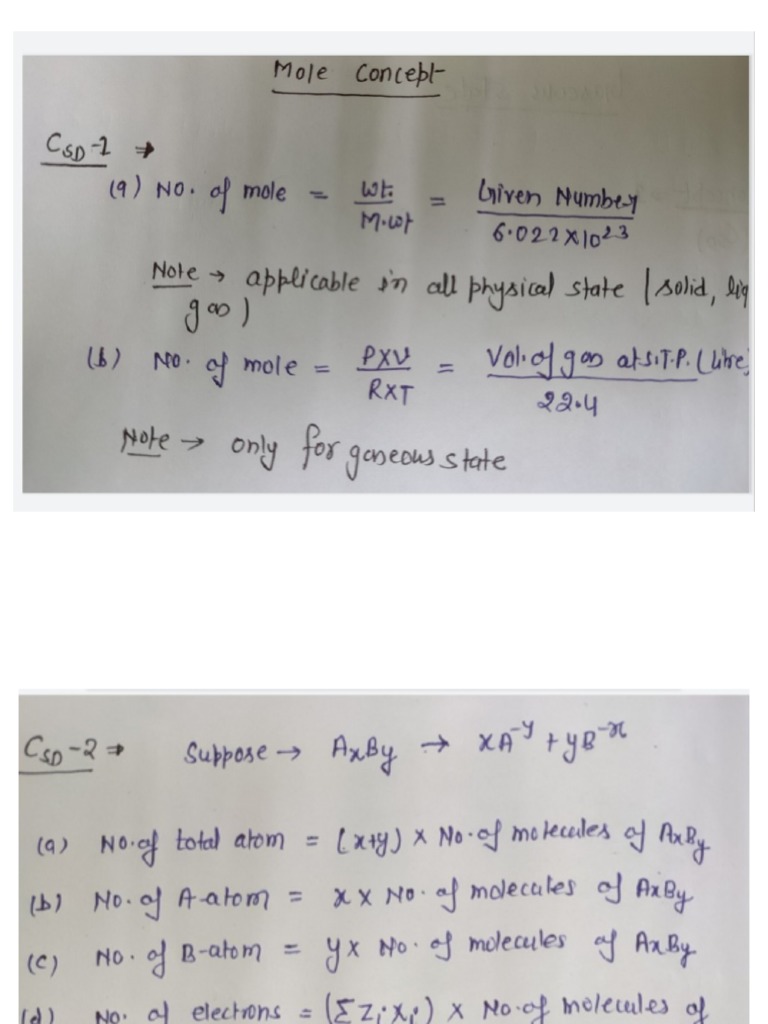 Mole Concept
CSD-1 →
(a) No. of mole = wt. / M.wt = Given Number / 6.022×10²³
Note → applicable in all physical state (solid, liq
gas)
(b) No. of mole = P×V / R×T = Vol. of gas at S.T.P. (litre) / 22.4
Note → only for gaseous state
CSD-2 ⇒ Suppose → AxBy → xA⁻ʸ + yB⁻ˣ
(a) No. of total atom = (x+y) × No. of molecules of AxBy
(b) No. of A-atom = x × No. of molecules of AxBy
(c) No. of B-atom = y × No. of molecules of AxBy
(d) No. of electrons = (ΣZixi) × No. of molecules of